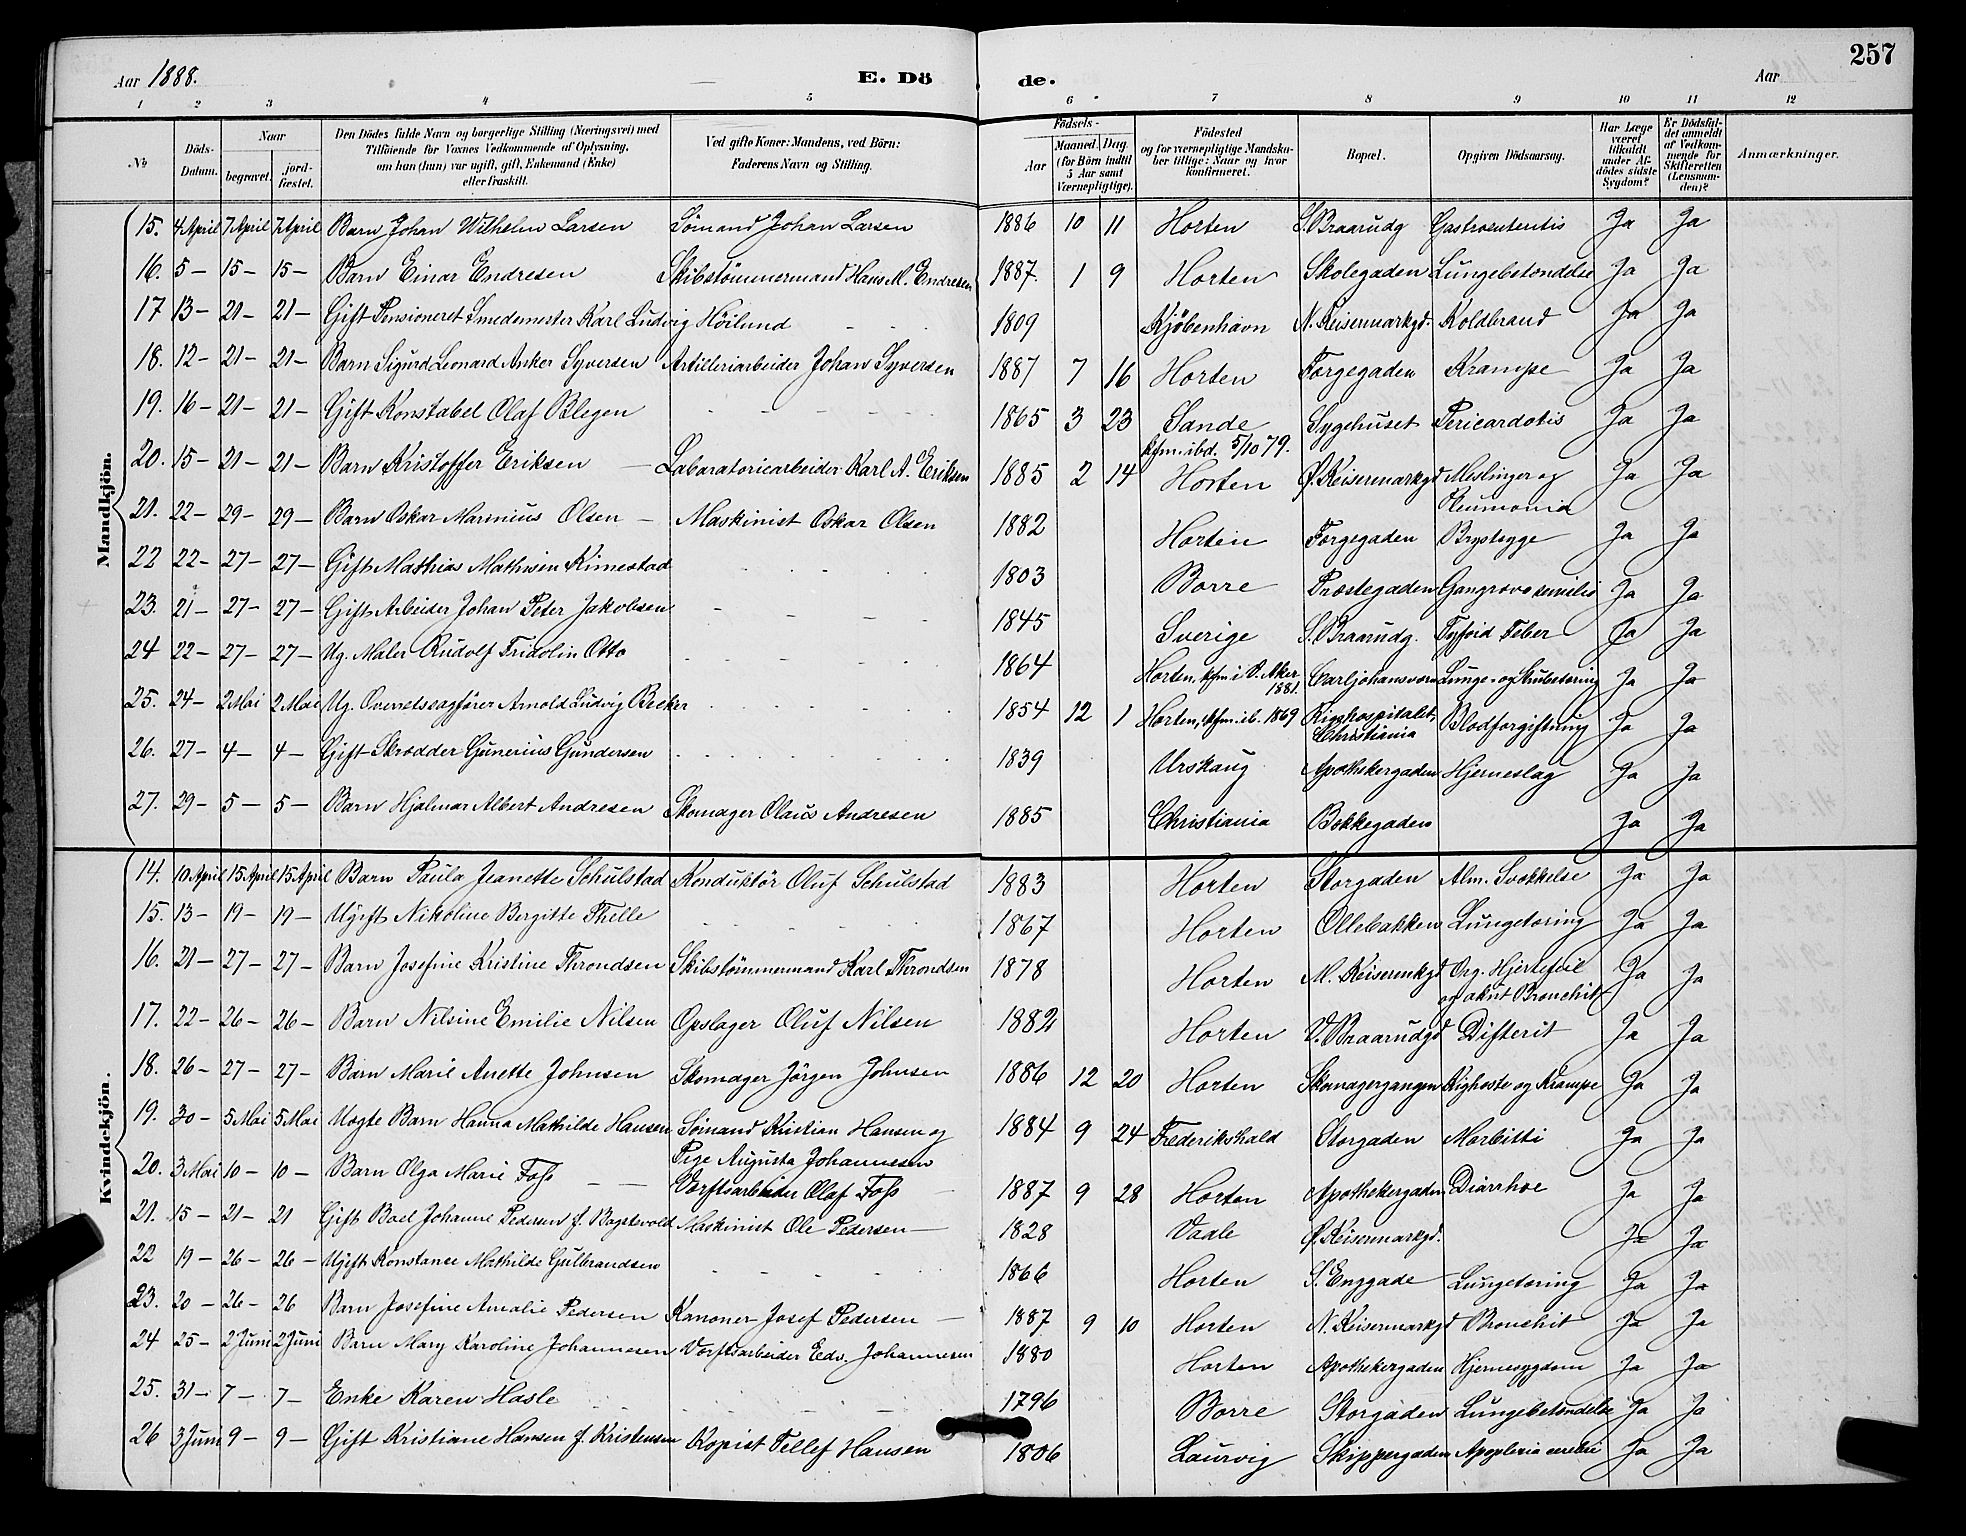 257
Aar 1888. E. Dö de. Aar
1 2 3 4 5 6 7 8 9 10 11 12
No
Döds-Datum.
Naar begravet. jord-fæstet.
Den Dödes fulde Navn og borgerlige Stilling (Næringsvei) med Tilföiende for Voxnes Vedkommende af Oplysning, om han (hun) var ugift, gift, Enkemand (Enke) eller fraskilt.
Ved gifte Koner: Mandens, ved Börn: Faderens Navn og Stilling.
Födsels- Aar Maaned. Dag. (for Börn indtil 5 Aar samt Værnepligtige).
Födested og for værnepligtige Mandskaber tillige: Naar og hvor konfirmeret.
Bopæl.
Opgiven Dödsaarsag.
Har Læge været tilkaldt under Afdödes sidste Sygdom?
Er Dödsfaldet anmeldt af Vedkommende for Skifteretten (Lensmanden)?
Anmærkninger.
Mandkjön.
15. 4 April 7 April 7 April Barn Johan Wilhelm Larsen Sömand Johan Larsen 1886 10 11 Horten S. Braarudg Gastroenteritis Ja Ja
16. 5 — 15 — 15 — Barn Einar Endresen Skibstömmermand Hans M. Endresen 1887. 1 9 Horten Skolegaden Lungebetændelse Ja Ja
17 13 — 21 — 21 — Gift Pensioneret Smedemester Karl Ludvig Höilund 1809 Kjöbenhavn N. Keisermarkgd. Koldbrand Ja Ja
18. 12 — 21 — 21 — Barn Sigurd Leonard Anker Syversen Artilleriarbeider Johan Syversen 1887 7 16 Horten Torgegaden Krampe Ja Ja
19. 16 — 21 — 21 — Gift Konstabel Olaf Blegen 1865 3 23 Sande Sygehuset Pericarditis Ja Ja
kfm. ibd. 5/10 79.
20. 15 — 21 — 21 — Barn Kristoffer Eriksen — Labaratoriearbeider Karl A. Eriksen 1885 2 14 Horten Ø. Keisermarkgd Meslinger og Ja Ja
Pneumonia
21. 22 — 29 — 29 — Barn Oskar Marinius Olsen — Maskinist Oskar Olsen 1882 Horten Torgegaden Brystsyge Ja Ja
22 22 — 27 — 27 — Gift Mathias Mathisen Kimestad 1803 Borre Præstegaden Gangræna senilis Ja Ja
23. 21 — 27 — 27 — Gift Arbeider Johan Peter Jakobsen 1845 Sverige S. Braarudg. Tyfoid Feber Ja Ja
24 22 — 27 — 27 — Ug. Maler Rudolf Fridolin Otto 1864 Horten, kfm. i V. Aker 1881. Carljohansværn Lunge- og Strubetæring Ja Ja
25. 24 — 2 Mai 2 Mai Ug. Overretssagfører Arnold Ludvig Becker 1854 12 1 Horten, kfm. ib. 1869 Rigshospitalet, Christiania Blodforgiftning Ja Ja
26. 27 — 4 — 4 — Gift Skrædder Gunerius Gundersen 1839 Urskaug Apothekergaden Hjerneslag Ja Ja
27. 29 — 5 — 5 — Barn Hjalmar Albert Andresen Skomager Olaus Andresen 1885 Christiania Bekkegaden Ja Ja
Kvindekjön.
14. 10 April 15 April 15 April Barn Paula Jeanette Schulstad Konduktör Oluf Schulstad 1883 Horten Storgaden Alm. Svækkelse Ja Ja
15. 13 — 19 — 19 — Ugift Nikoline Bergitte Thelle 1867 Horten Ollebakken Lungetæring Ja Ja
16. 21 — 27 — 27 — Barn Josefine Kristine Throndsen Skibstömmermand Karl Throndsen 1878 Horten M. Keisermkgd Org. Hjertefeil og akut Bronchit Ja Ja
17. 22 — 26 — 26 — Barn Nilsine Emilie Nilsen Opslager Oluf Nilsen 1882 Horten V. Braarudgd Difterit Ja Ja
18. 26 — 27 — 27 — Barn Marie Anette Johnsen Skomager Jörgen Johnsen 1886 12 20 Horten Skomagergangen Kighoste og Krampe Ja Ja
19. 30 — 5 Mai 5 Mai Uægte Barn Hanna Mathilde Hansen Sömand Kristian Hansen og Pige Augusta Johannesen 1884 9 24 Frederikshald Storgaden Morbilli Ja Ja
20. 3 Mai 10 — 10 — Barn Olga Marie Foss — — Værftsarbeider Olaf Foss — 1887 9 28 Horten Apothekergaden Diarrhoe Ja Ja
21. 15 — 21 — 21 Gift Boel Johanne Pedersen f. Bogstvold Maskinist Ole Pedersen — 1828 Vaale Ø. Keisermarkgd. Ja Ja
22 19 — 26 — 26 — Ugift Konstance Mathilde Gulbrandsen 1866 Horten S. Enggade Lungetæring Ja Ja
23. 20 — 26 — 26 Barn Josefine Amalie Pedersen Kanoner Josef Pedersen — 1887 9 10 Horten N. Keisermarkgd Bronchit Ja Ja
24 25 — 2 Juni 2 Juni Barn Mary Karoline Johannesen Værftsarbeider Edv. Johannesen 1880 Horten Apothekergaden Hjernesygdom Ja Ja
25. 31 — 7 — 7 — Enke Karen Hasle 1796 Borre Storgaden Lungebetændelse Ja Ja
26 3 Juni 9 — 9 — Gift Kristiane Hansen f. Kristensen Kopist Tellef Hansen 1806 Laurvig Skippergaden Apoplexia cerebri Ja Ja